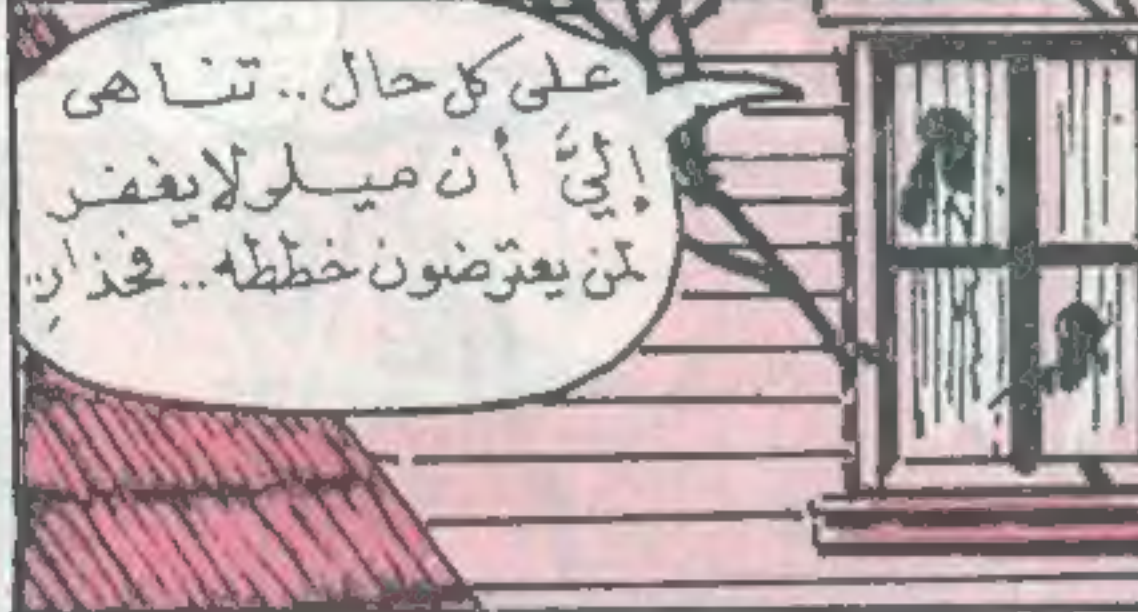 على كل حال.. تناهى
إليَّ أن ميلو لا يغفر
لمن يعترضون خططه.. فحذارِ..